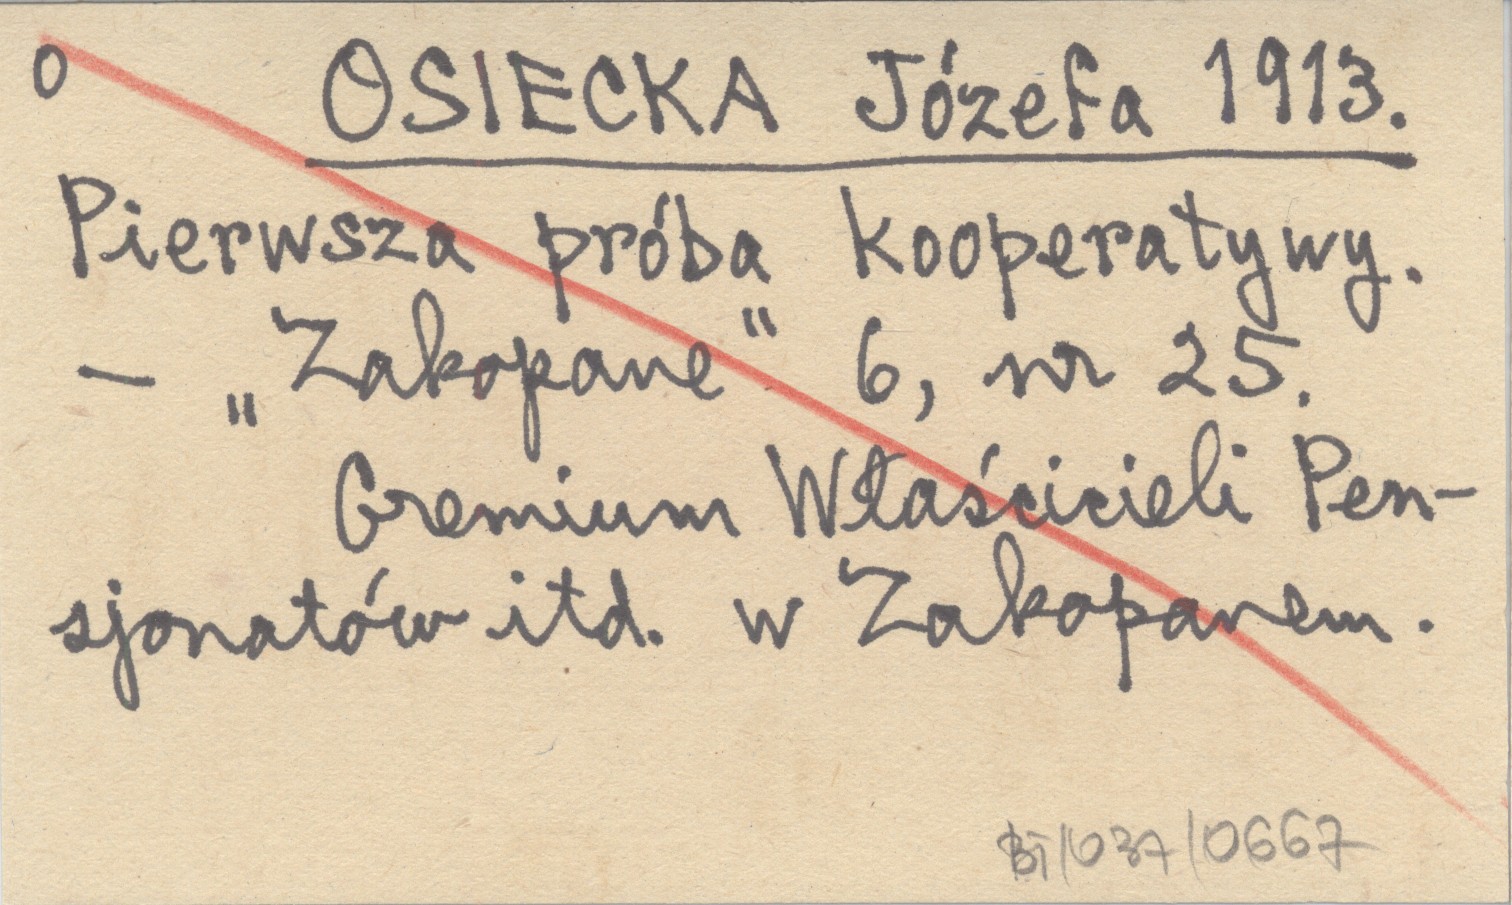 O OSIECKA Józefa 1913.
Pierwsza próba kooperatywy.
– „Zakopane" 6, nr 25.
Gremium Właścicieli Pen-
sjonatów itd. w Zakopanem.
BT/037/0667